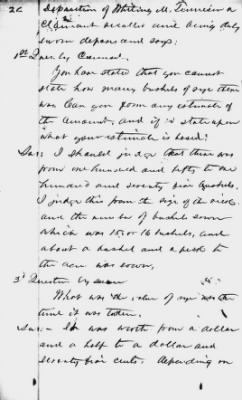 22 Deposition of Whiting M. Tennien a
Claimant recalled and being duly
sworn deposes and says:
1st Ques by Counsel.
You have stated that you cannot
state how many bushels of rye there
was Can you form any estimate of
the amount, and if so state upon
what your estimate is based?
Ans: I should judge that there was
from one hundred and fifty to one
hundred and seventy five bushels.
I judge this from the size of the
and the number of bushels sown
which was 15, or 16 bushels, and
about a bushel and a peck to
the acre was sown.
3d Question by same
What was the value of rye the
time it was taken.
Ans: It was worth from a dollar
and a half to a dollar and
seventy five cents. depending on